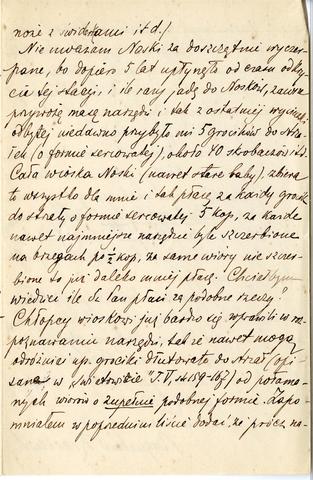 noże z świderkami itd.)
Nie uważam Noski za doszczętnie wyczer-
pane, bo dopiero 5 lat upłynęło od czasu odkry-
cia tej stacyi, i ile razy jadę do Nosków, zawsze
przywożę masę narzędzi i tak z ostatniej wyciecz-
odbytej niedawno przybyło mi 5 grocików do strza-
łek (o formie sercowatej), około 40 skrobaczów itd.
Cała wioska Noski (nawet stare baby), zbiera
to wszystko dla mnie i tak płacę za każdy grocik
do strzały o formie sercowatej 5 kop, za każde
nawet najmniejsze narzędzie byle szczerbione
na brzegach po ½ kop, za same wióry nie szczer-
bione to już daleko mniej płacę. Chciałbym
wiedzieć ile Sz. Pan płaci za podobne rzeczy?
Chłopcy wioskowi już bardzo się wprawili w ro-
zpoznawaniu narzędzi, tak że nawet mogą
odróżniać np. grociki dłutowate do strzał (opi-
sane w „Światowicie" T. V, st 159-163) od połama-
nych wiórów o zupełnie podobnej formie. Zapo-
mniałem w poprzednim liście dodać, że prócz na-